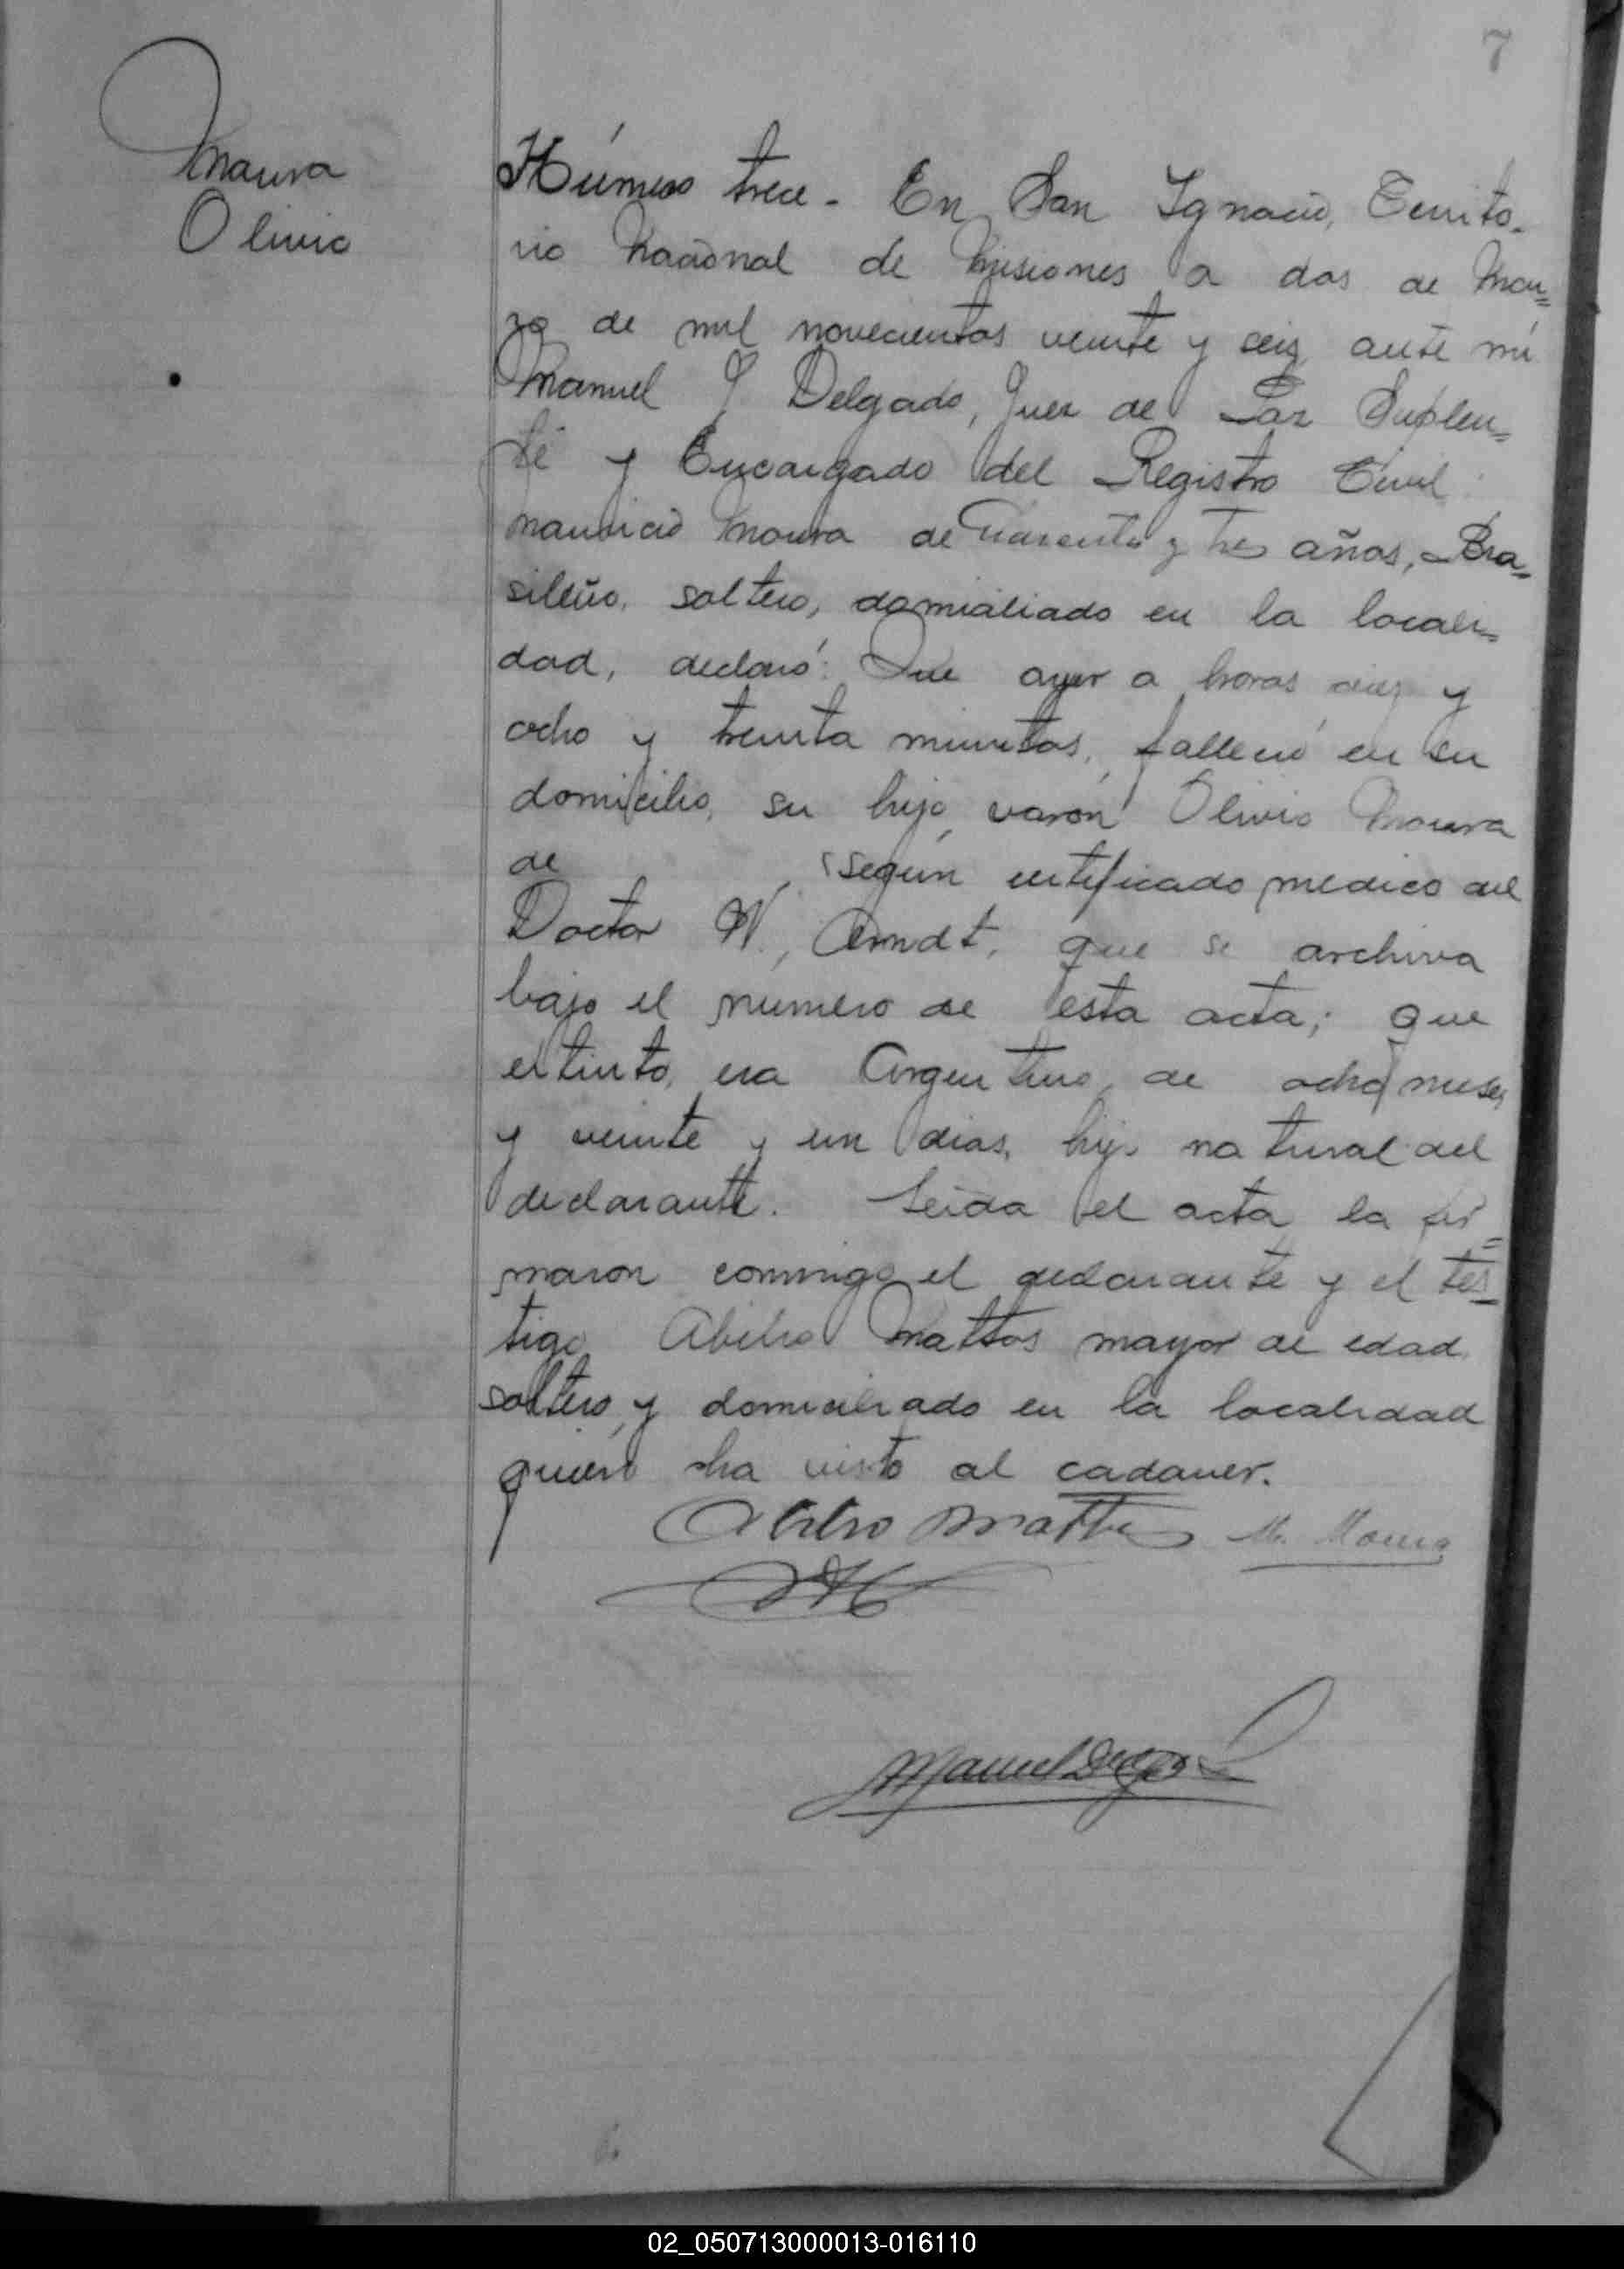 7
Moura
Olivio
Número trece - En San Ignacio, Territo-
rio Nacional de Misiones a dos de Mar=
zo de mil novecientos veinte y seis ante mi
Manuel J Delgado, Juez de Paz Suplen=
te y Encargado del Registro Civil
Mauricio Moura de cuarenta y tres años, Bra=
sileño, soltero, domiciliado en la locali=
dad, declaró: Que ayer a horas diez y
ocho y treinta minutos, falleció en su
domicilio, su hijo varón Olivio Moura
de según certificado medico del
Doctor W. Arndt, que se archiva
bajo el numero de esta acta; que
extinto, era Argentino, de ocho meses
y veinte y un dias, hijo natural del
declarante. Leida el acta la fir=
maron conmigo el declarante y el tes-
tigo Abilio Mattos mayor de edad
soltero y domiciliado en la localidad
quien ha visto al cadaver.
Abilio Mattos M. Moura
Manuel Delgado
02_050713000013-016110